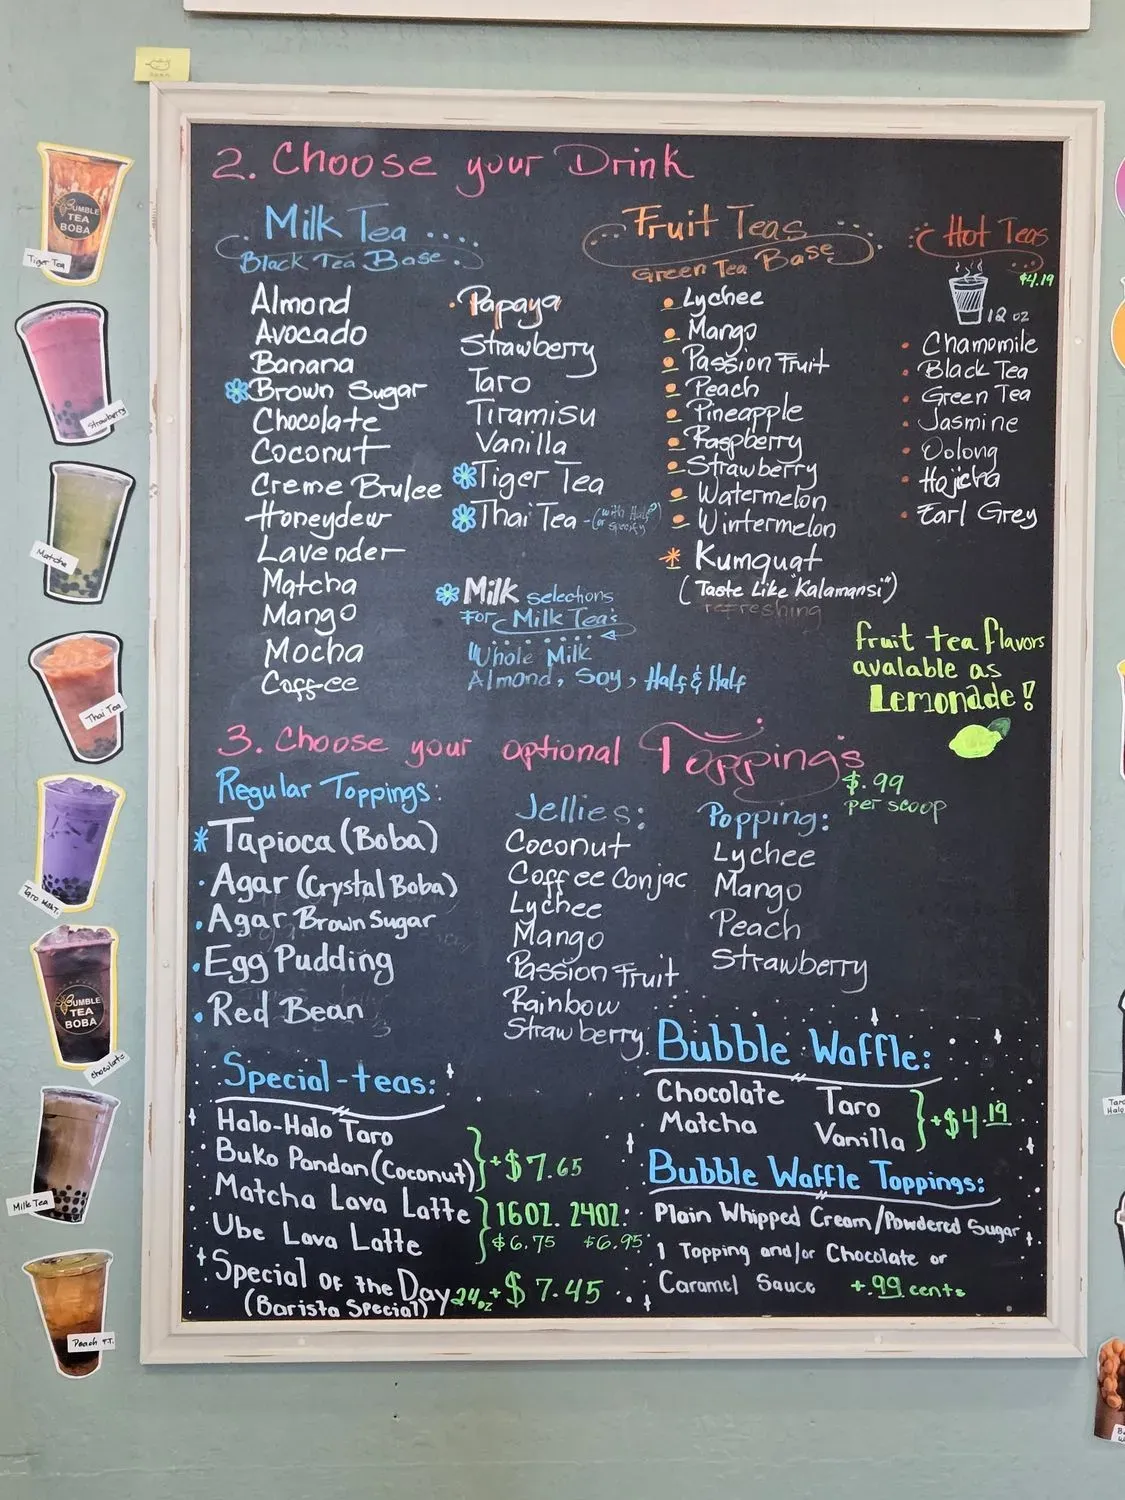 2. Choose your Drink
Milk Tea
Black Tea Base
Almond
Avocado
Banana
Brown Sugar
Chocolate
Coconut
Creme Brulee
Honeydew
Lavender
Matcha
Mango
Mocha
Coffee
Papaya
Strawberry
Taro
Tiramisu
Vanilla
Tiger Tea
Thai Tea - (with Half?
(or specify)
Milk selections
For Milk Tea's
"Whole Milk
Almond, Soy, Half & Half
Fruit Teas
Green Tea Base
Lychee
Mango
Passion Fruit
Peach
Pineapple
Raspberry
Strawberry
Watermelon
Wintermelon
Kumquat
(Taste Like "Kalamansi")
refreshing
Hot Teas
$4.19
12 oz
Chamomile
Black Tea
Green Tea
Jasmine
Oolong
Hojicha
Earl Grey
fruit tea flavors
avalable as
Lemonade!
3. Choose your optional Toppings
$.99
per scoop
Regular Toppings:
Tapioca (Boba)
Agar (Crystal Boba)
Agar Brown Sugar
Egg Pudding
Red Bean
Jellies:
Coconut
Coffee Conjac
Lychee
Mango
Passion Fruit
Rainbow
Strawberry
Popping:
Lychee
Mango
Peach
Strawberry
Special-teas:
Halo-Halo Taro
Buko Pandan (Coconut)
+$7.65
Matcha Lava Latte
Ube Lava Latte
16OZ. 24OZ.
$6.75 $6.95
Special of the Day 24oz + $7.45
(Barista Special)
Bubble Waffle:
Chocolate Taro
Matcha Vanilla
+$4.19
Bubble Waffle Toppings:
Plain Whipped Cream/Powdered Sugar
1 Topping and/or Chocolate or
Caramel Sauce +.99 cents
BUMBLE
TEA
BOBA
Tiger Tea
Strawberry
Matcha
Thai Tea
Taro Milk T.
BUMBLE
TEA
BOBA
Chocolate
Milk Tea
Peach F.T.